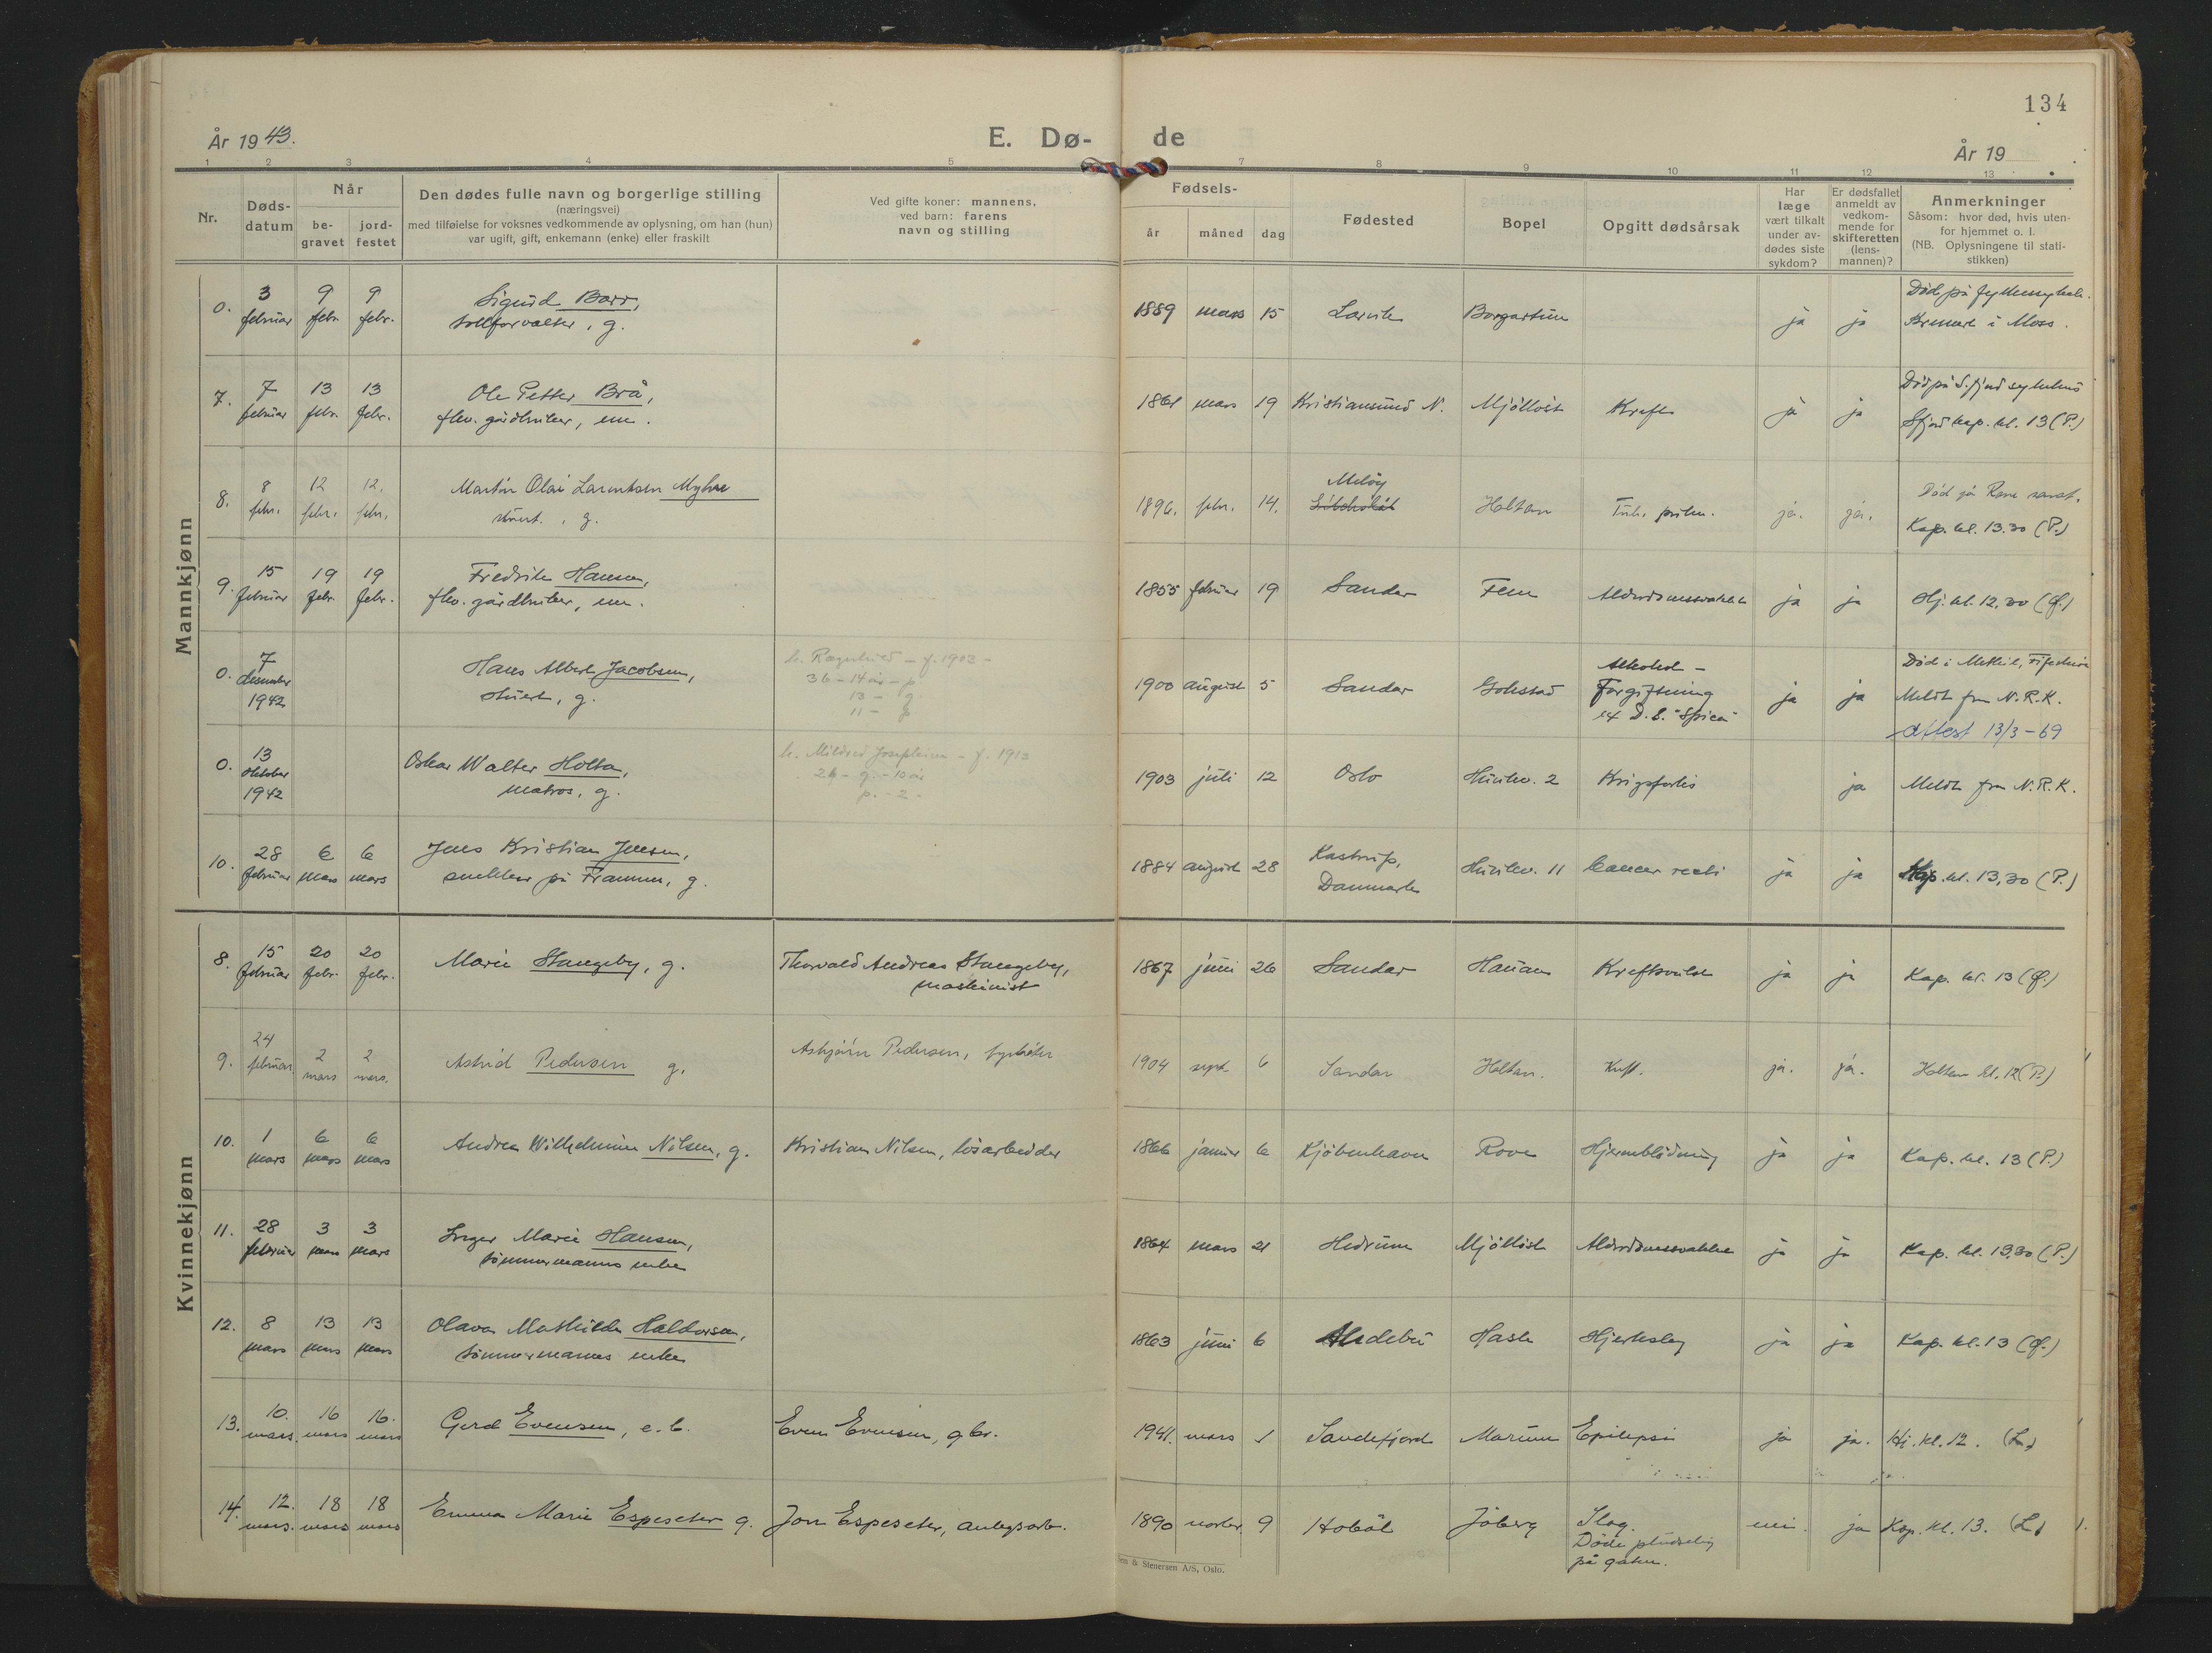 134
År 1943.
E. Dø-
de
År 19
1 2 3 4 5 7 8 9 10 11 12 13
Nr.
Døds-
datum
Når
be-
gravet
jord-
festet
Den dødes fulle navn og borgerlige stilling
(næringsvei)
med tilføielse for voksnes vedkommende av oplysning, om han (hun)
var ugift, gift, enkemann (enke) eller fraskilt
Ved gifte koner: mannens,
ved barn: farens
navn og stilling
Fødsels-
år måned dag
Fødested
Bopel
Opgitt dødsårsak
Har
læge
vært tilkalt
under av-
dødes siste
sykdom?
Er dødsfallet
anmeldt av
vedkom-
mende for
skifteretten
(lens-
mannen)?
Anmerkninger
Såsom: hvor død, hvis uten-
for hjemmet o. l.
(NB. Oplysningene til stati-
stikken)
Mannkjønn
0. 3 februar 9 febr. 9 febr.
Sigurd Barr,
tollforvalter, g.
1889 mars 15 Larvik Borgartun ja ja
Død på fylkessykeh.
Kremert i Moss.
7. 7 februar 13 febr. 13 febr.
Ole Petter Brå,
fhv. gårdbruker, em.
1861 mars 19 Kristiansund N. Mjölløst Kreft ja ja
Død på S.fjord sykehus
Sfjord kap. kl. 13 (P.)
8. 8 febr. 12 febr. 12. febr.
Martin Olai Larentsen Myhre
stuert. , g.
1896. febr. 14. Meløy Holtan Tub. pulm. ja. ja.
Død på Rone sanat.
Kap. kl. 13.30 (P.)
9. 15 februar 19 febr. 19 febr.
Fredrik Hansen,
fhv. gårdbruker, em.
1855 februar 19 Sandar Fem Alderdomssvakhet ja ja Hj. kl. 12,30 (Ø.)
0. 7 desember 1942
Hans Albert Jacobsen,
stuert, g.
h. Ragnhild – f. 1903 –
36 – 14 år – p
13 – g.
11 – p
1900 august 5 Sandar Gokstad
Alkohol –
Forgiftning
ex D.S. "Spica"
ja ja
Død i Methil, Fifeshire
Meldt fra N.R.K.
Attest 13/3-69
0. 13 oktober 1942
Oskar Walter Holta,
matros, g.
h. Mildred Josephine – f. 1913
26 – g. – 10 år
p. – 2 –
1903 juli 12 Oslo Hunkv. 2 Krigsforlis ja Meldt fra N.R.K.
10. 28 februar 6 mars 6 mars
Jens Kristian Jensen,
snekker på Framnes, g.
1884 august 28 Kastrup,
Danmark
Hunkv. 11 Cancer recti ja ja Kap. kl. 13,30 (P.)
Kvinnekjønn
8. 15 februar 20 febr. 20 febr.
Marie Stangeby, g.
Thorvald Andreas Stangeby,
maskinist
1867 juni 26 Sandar Hauan Kreftsvulst ja ja Kap. kl. 13 (Ø.)
9. 24 februar. 2 mars 2 mars.
Astrid Pedersen g.
Asbjørn Pedersen, fyrbøter
1904 sept. 6 Sandar Holtan. Kreft. ja. ja. Holtan kl. 12 (P.)
10. 1 mars 6 mars 6 mars
Andrea Wilhelmine Nilsen, g.
Kristian Nilsen, løsarbeider
1866 januar 6 Kjøbenhavn Rove Hjerneblødning ja ja Kap. kl. 13 (P.)
11. 28 februar 3 mars 3 mars
Inger Marie Hansen,
tømmermanns enke
1864 mars 21 Hedrum Mjölløst Alderdomssvakhet ja ja Kap. kl. 13,30 (P.)
12. 8 mars 13 mars 13 mars
Olava Mathilde Haldorsen,
tømmermanns enke
1863 juni 6 Andebu Hasle Hjerteslag ja ja Kap. kl. 13 (Ø.)
13. 10. mars. 16 mars 16. mars
Gerd Evensen, e. b.
Even Evensen, gbr.
1941. mars 1 Sandefjord Marum Epilepsi ja ja. Hj. kl. 12. (L.)
14. 12. mars. 18 mars 18 mars
Emma Marie Espeseter g.
Jon Espeseter, anlegsarb.
1890 novbr. 9 Hobøl Jåberg
Slag.
Døde pludselig
på gaten.
nei. ja Kap. kl. 13. (L.)
& Stenersen A/S, Oslo.